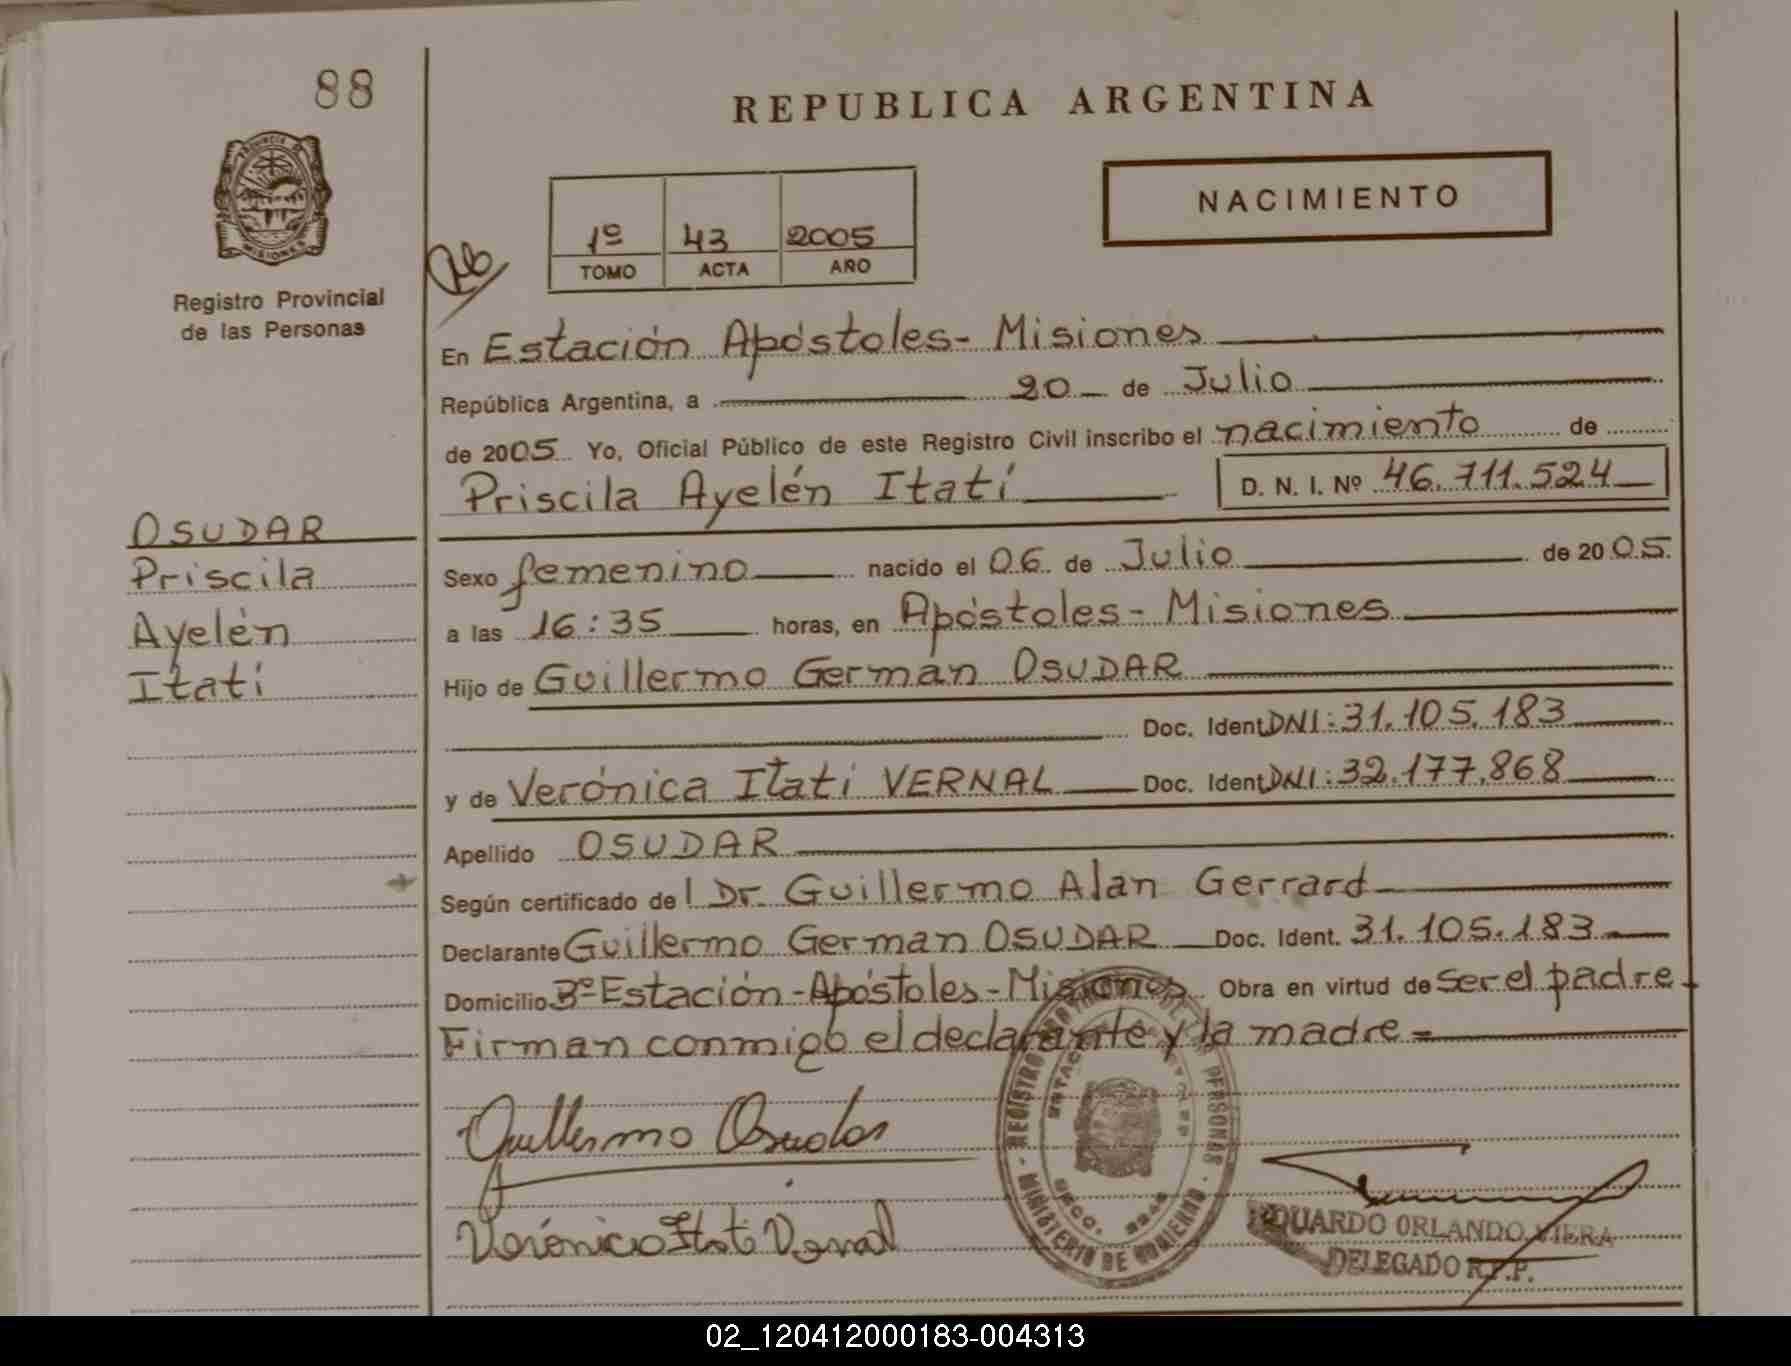 88
REPUBLICA ARGENTINA
PROVINCIA DE
MISIONES
NACIMIENTO
1º 43 2005
TOMO ACTA AÑO
Registro Provincial
de las Personas
En Estación Apóstoles - Misiones
República Argentina, a 20 de Julio
de 2005 Yo, Oficial Público de este Registro Civil inscribo el nacimiento de
Priscila Ayelén Itatí D. N. I. Nº 46.711.524
OSUDAR
Priscila
Ayelén
Itatí
Sexo femenino nacido el 06 de Julio de 2005.
a las 16:35 horas, en Apóstoles - Misiones
Hijo de Guillermo German OSUDAR
Doc. Ident DNI: 31.105.183
y de Verónica Itati VERNAL Doc. Ident DNI: 32.177.868
Apellido OSUDAR
Según certificado del Dr. Guillermo Alan Gerrard
Declarante Guillermo German OSUDAR Doc. Ident. 31.105.183
Domicilio Bº Estación - Apóstoles - Misiones Obra en virtud de ser el padre
Firman conmigo el declarante y la madre =
Guillermo Osudar
REGISTRO PERSONAS - MINISTERIO DE GOBIERNO -
Verónica Itati Vernal
EDUARDO ORLANDO VIERA
DELEGADO R.P.P.
02_120412000183-004313